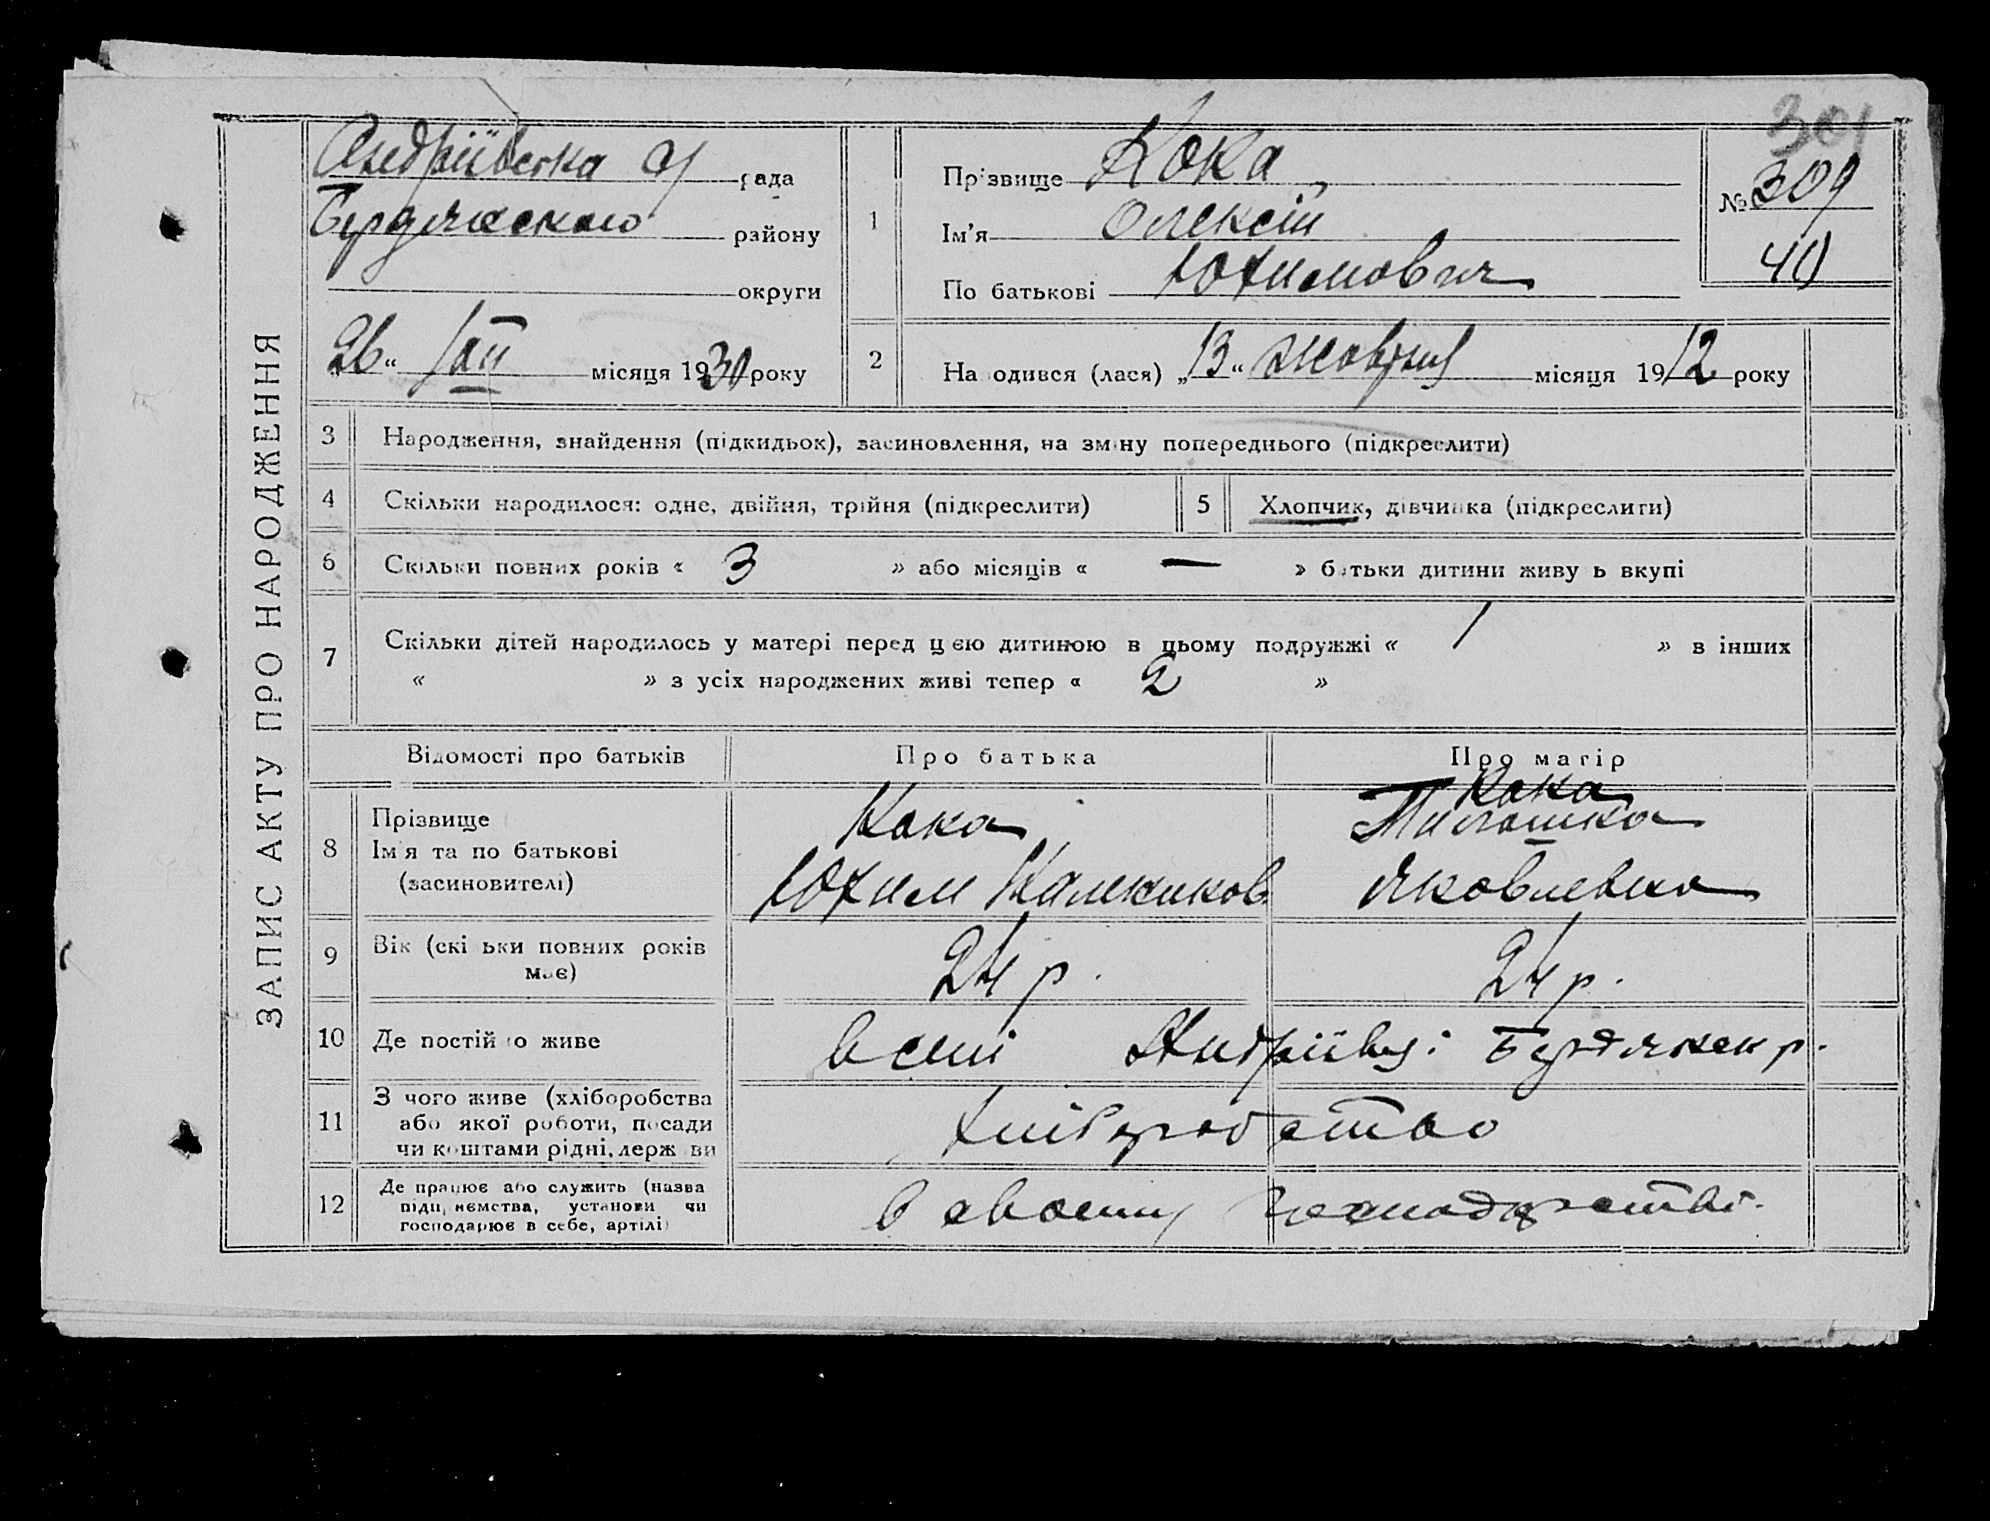 301
ЗАПИС АКТУ ПРО НАРОДЖЕННЯ
Андріївська с/ рада
Бердянського району
округи
"26" місяця 1930 року
1
Прізвище Кока
Ім'я Олексій
По батькові Юхимович
№ 309
40
2
Народився (лася) „13“ жовтня місяця 1912 року
3 Народження, знайдення (підкидьок), засиновлення, на зміну попереднього (підкреслити)
4 Скільки народилося: одне, двійня, трійня (підкреслити)
5 Хлопчик, дівчинка (підкреслити)
6 Скільки повних років « 3 » або місяців « — » батьки дитини живуть вкупі
7 Скільки дітей народилось у матері перед цією дитиною в цьому подружжі « 1 » в інших
« » з усіх народжених живі тепер « 2 »
Відомості про батьків
Про батька
Про матір
8 Прізвище
Ім'я та по батькові
(засиновителі)
Кока
Юхим
Кока
Яковлевна
9 Вік (скільки повних років
має)
24 р.
24 р.
10 Де постійно живе
в селі Андріївці Бердянськ р.
11 З чого живе (хліборобства
або якої роботи, посади
чи коштами рідні, держави
хліборобство
12 Де працює або служить (назва
підприємства, установи чи
господарює в себе, артілі)
в своєму господарстві.